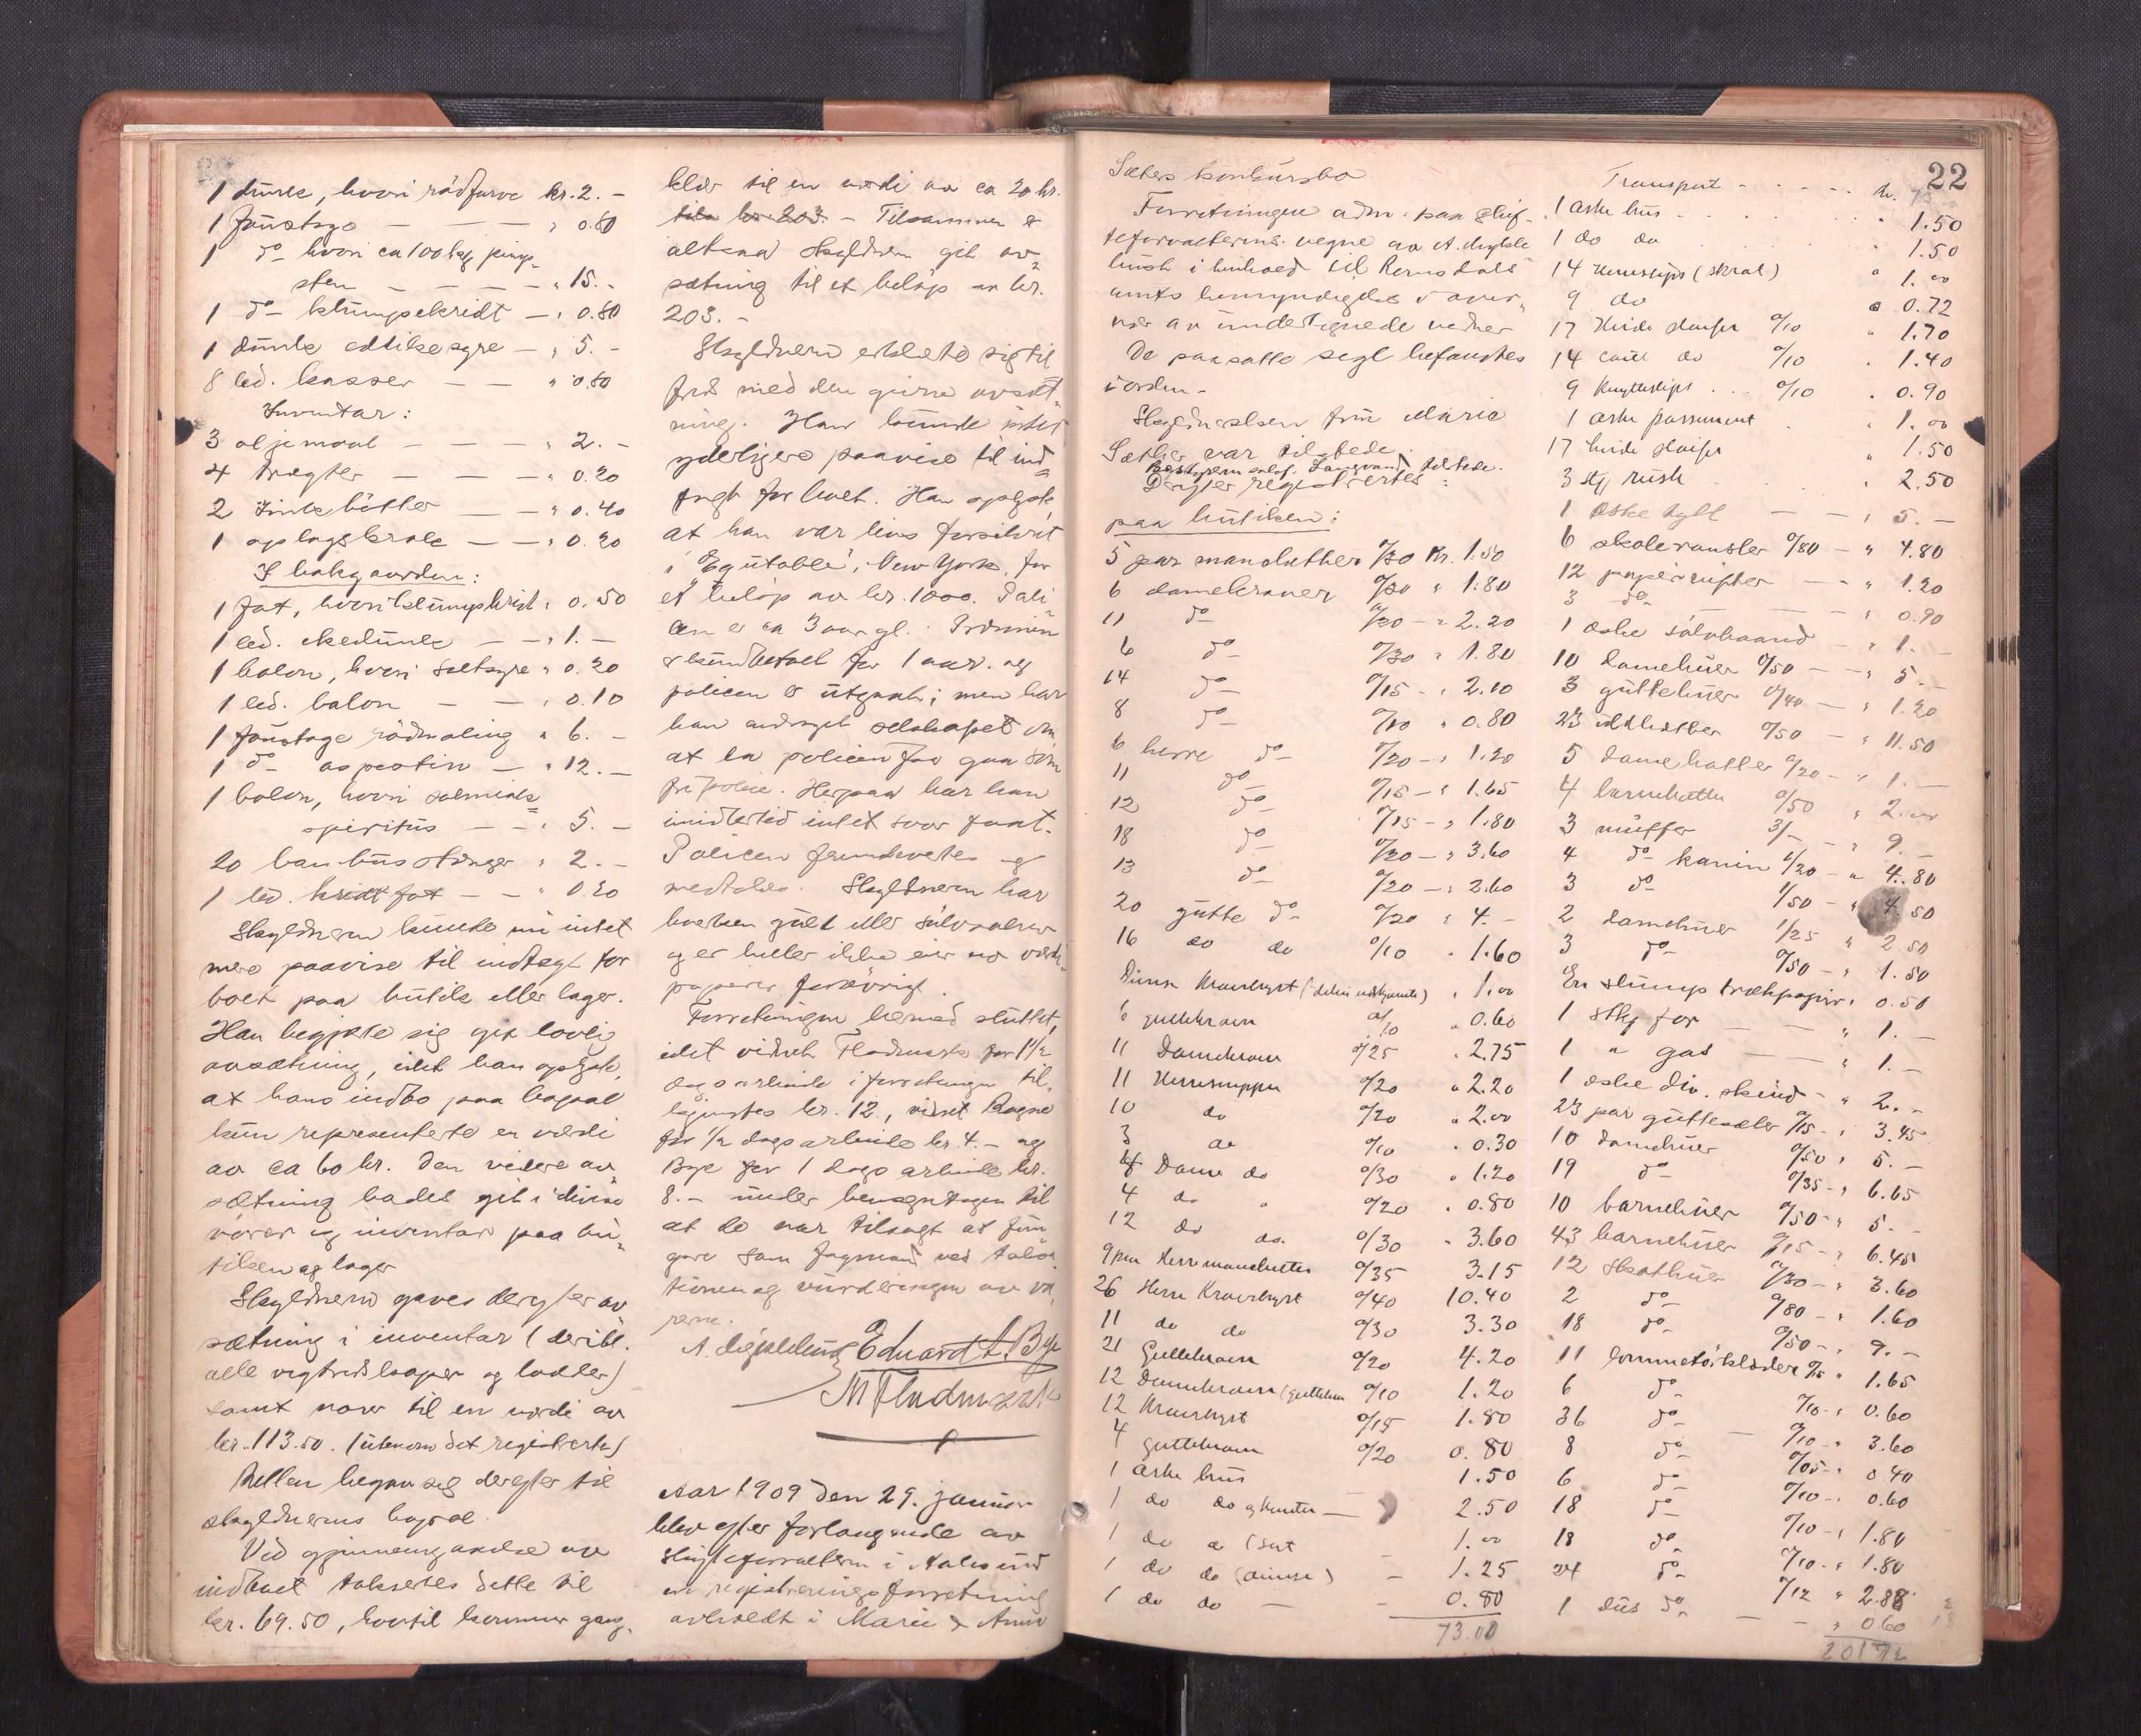 1 dunk, hvori rödfarve kr. 2.-
1 faustage — — — " 0.80
1 do hvori ca 100 kg pimp-
sten — — — — " 15.-
1 do klumpekridt — " 0.80
1 dunk edikesyre — " 5.-
8 led. kasser — — " 0.80
Inventar:
3 oljemaal — — — " 2.-
4 tragter — — — " 0.20
2 zinkbötter — — " 0.40
1 oplagskrak — — " 0.20
I bakgaarden:
1 fat, hvori klumpkridt " 0.50
1 led. ekedunk — — " 1.-
1 balon, hvori saltsyre " 0.20
1 led. balon — — " 0.10
1 faustage rödmaling " 6.-
1 do — " 12.-
1 balon, hvori salmiak
spiritus — — " 5.-
20 bambusstænger " 2.-
1 led. kridtfat — — " 0.20
Skyldneren kunde nu intet
mere paavise til indtægt for
boet paa butik eller lager.
Han begjærte sig git lovlig
avsætning, idet han opgav,
at hans indbo paa bopæl
kun representerte en værdi
av ca 60 kr. Den videre av-
sætning bades git i diverse
varer og inventar paa bu-
tiken og lager
Skyldneren gaves derefter av
sætning i inventar (deribl.
alle vegtredskaper og lodder)
samt varer til en værdi av
kr. 113.50. (utenom det registrerte)
Retten begav sig derefter til
skyldnerens bopæl.
Ved gjennemgaaelse av
indboet takseredes dette til
kr. 69.50, hvortil kommer gang-
klær til en værdi av ca 20 kr.
Tilsammen er
altsaa skyldneren git av-
sætning til et beløp av kr.
203.-
Skyldneren erklærte sig til
freds med den givne avsæt-
ning. Han kunde intet
yderligere paavise til ind
tægt for boet. Han opgav,
at han var livsforsikret
i "Equitable", New York, for
et beløp av kr. 1000. Poli
cen er ca 3 aar gl. Præmien
er kun betalt for 1 aar. og
policen er utgaat; men har
han andraget selskapet om
at la policen faa gaa som
fripolice. Herpaa har han
imidlertid intet svar faat.
Policen fremlevertes og
medtoges. Skyldneren har
hverken guld eller sølvsaker
og er heller ikke eier av værdi-
papirer forøvrigt.
Forretningen hermed sluttet,
idet vidnet Flademark for 1½
dags arbeide i forretningen til-
kjendtes kr. 12., vidnet Ragne
for ½ dags arbeide kr. 4.- og
Bye for 1 dags arbeide kr.
8.- under hensyntagen til
at de var tilsagt at fun
gere som fagmænd ved takse
tionen og vurderingen av va
rerne.
Eduard L. Bye
M Fladmark
Aar 1909 den 29. januar
blev efter forlangende av
skifteforvalteren i Aalesund
en registreringsforretning
avholdt i Marie & Anna
22
Sæters konkursbo
Forretningen adm. paa skif-
teforvalterens vegne av A.
i henhold til Romsdals
amts bemyndigelse i over-
vær av undertegnede vidner
De paasatte segl befandtes
i orden.-
Skyldnersken frøken Marie
Sæther var tilstede.
Bestyreren sakf. Langvand tilstede.
Derefter registrertes:
paa butiken:
5 par manchetter 0/30 Kr. 1.50
6 damekraver 0/30 " 1.80
11 do 0/20 — " 2.20
6 do 0/30 " 1.80
14 do 0/15 — " 2.10
8 do 0/10 " 0.80
6 herre do 0/20 — " 1.20
11 do 0/15 — " 1.65
12 do 0/15 — " 1.80
18 do 0/20 — " 3.60
13 do 0/20 — " 2.60
20 gutte do 0/20 " 4.-
16 do do 0/10 " 1.60
Diverse Kravebryst " 1.00
6 guttekraver 0/10 " 0.60
11 Damekraver 0/25 " 2.75
11 Herresnipper 0/20 " 2.20
10 do 0/20 " 2.00
3 do 0/10 " 0.30
4 Dame do 0/30 " 1.20
4 do " 0/20 " 0.80
12 do do 0/30 " 3.60
9 par Herremanchetter 0/35 3.15
26 Herre Kravebryst 0/40 10.40
11 do do 0/30 3.30
21 Guttekraver 0/20 4.20
12 Damekraver (guttekraver 0/10 1.20
12 Kravebryst 0/15 1.80
4 guttekraver 0/20 0.80
1 æske krus 1.50
1 do do og — 2.50
1 do do (sort 1.00
1 do do (diverse) — 1.25
1 do do — — 0.80
73.00
Transport - - - - - - kr. 73.00
1 æske krus . . . . . . " 1.50
1 do do . . . . . " 1.50
14 Herreslips (skrat) " 1.00
9 do " 0.72
17 Hvide sløifer 0/10 " 1.70
14 do 0/10 " 1.40
9 Knytteslips . . . 0/10 " 0.90
1 æske passement . . " 1.00
17 hvide sløifer " 1.50
3 stk rusk . . . " 2.50
1 æske tyll — — " 5.-
6 skoleransler 0/80 — " 4.80
12 papirvifter — — " 1.20
3 do — — " 0.90
1 æske sølvbaand — " 1.-
10 damehuer 0/50 — " 5.-
3 guttehuer 0/40 — " 1.20
23 0/50 — " 11.50
5 damehatter 0/20 — " 1.-
4 barnehatter 0/50 " 2.00
3 muffer 3/- — " 9.-
4 do kanin 1/20 — " 4.80
3 do 1/50 — " 4.50
2 damehuer 1/25 " 2.50
3 do 0/50 — " 1.50
En slump trækpapir " 0.50
1 stk for — — " 1.-
1 " gas — — " 1.-
1 æske div. skind — " 2.-
23 par gutteseler 0/15 — " 3.45
10 damehuer 0/50 " 5.-
19 do 0/35 — " 6.65
10 barnehuer 0/50 — " 5.-
43 barnehuer 0/15 — " 6.45
12 Skothuer 0/30 — " 3.60
2 do 0/80 — " 1.60
18 do 0/50 — " 9.-
11 lommetörklæder 0/15 " 1.65
6 do 0/10 — " 0.60
36 do — 0/10 — " 3.60
8 do 0/05 — " 0.40
6 do 0/10 — " 0.60
18 do 0/10 — " 1.80
18 do 0/10 — " 1.80
24 do 0/12 " 2.88
1 dus do — — " 0.60